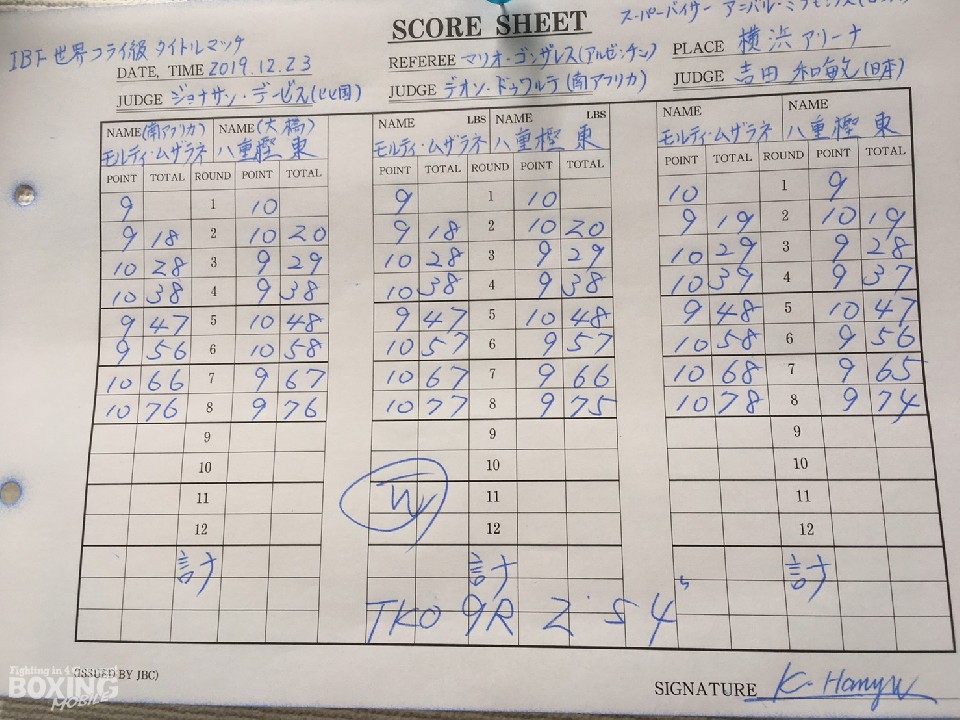 SCORE SHEET
スーパーバイザー アニバル・ミラモンテス
IBF世界フライ級タイトルマッチ
DATE, TIME 2019.12.23
REFEREE マリオ・ゴンザレス(アルゼンチン)
PLACE 横浜アリーナ
JUDGE ジョナサン・デービス(比国)
JUDGE デオン・ドゥワルテ(南アフリカ)
JUDGE 吉田和敏(日本)
NAME (南アフリカ) NAME (大橋) NAME LBS NAME LBS NAME NAME
モルティ・ムザラネ 八重樫 東 モルティ・ムザラネ 八重樫 東 モルティ・ムザラネ 八重樫 東
POINT TOTAL ROUND POINT TOTAL POINT TOTAL ROUND POINT TOTAL POINT TOTAL ROUND POINT TOTAL
9 1 10 9 1 10 10 1 9
9 18 2 10 20 9 18 2 10 20 9 19 2 10 19
10 28 3 9 29 10 28 3 9 29 10 29 3 9 28
10 38 4 9 38 10 38 4 9 38 10 39 4 9 37
9 47 5 10 48 9 47 5 10 48 9 48 5 10 47
9 56 6 10 58 10 57 6 9 57 10 58 6 9 56
10 66 7 9 67 10 67 7 9 66 10 68 7 9 65
10 76 8 9 76 10 77 8 9 75 10 78 8 9 74
9 9 9
10 10 10
11 W 11 11
12 12 12
計 計 計
TKO 9R 2'54
(ISSUED BY JBC)
Fighting in 4 Corner!
BOXING
MOBILE
SIGNATURE K. Hanyu